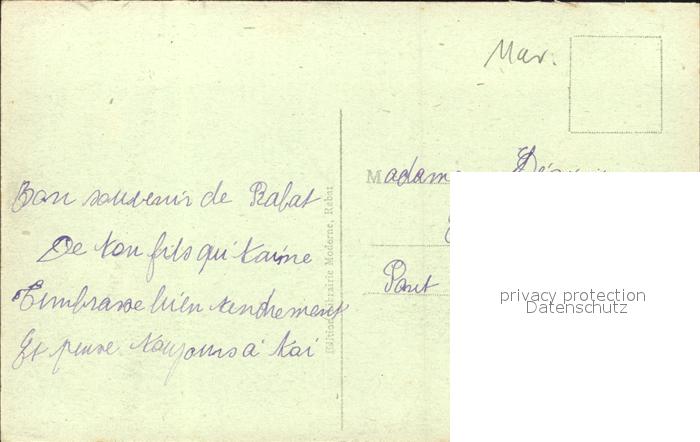 Mar.
Madame
Bon souvenir de Rabat
De ton fils qui t'aime
T'embrasse bien tendrement
Et pense toujours à toi
Pont
Edition Librairie Moderne, Rabat
privacy protection
Datenschutz